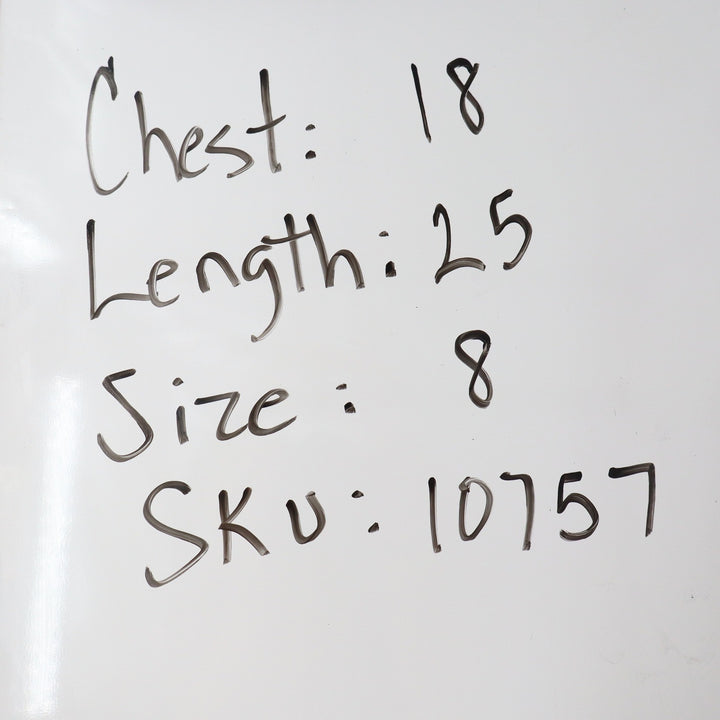 Chest: 18
Length: 25
Size: 8
SKU: 10757